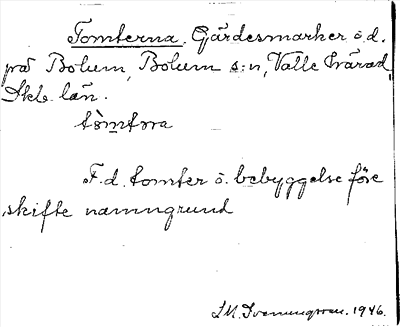 Tomterna. Gärdesmarker o.d.
på Bolum, Bolum s:n, Valle härad,
Skb. län.
tòmtᵊrna
F.d. tomter o. bebyggelse före
skifte namngrund
1946.